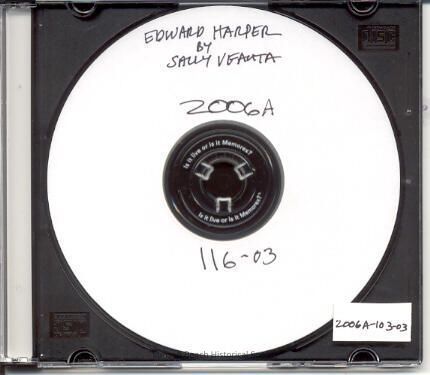 EDWARD HARPER
BY
SALLY
2006A
Is it live or is it Memorex?
Is it live or is it Memorex?
116-03
2006A-103-03
Historical